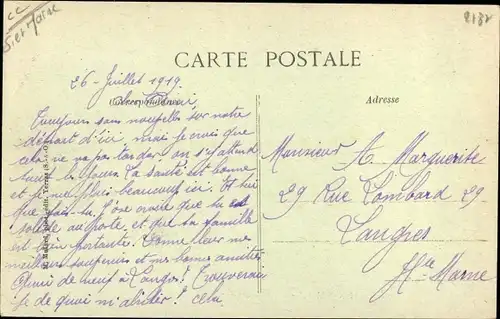 CC
S. et Marne
2132
CARTE POSTALE
26 - Juillet 1919.
Correspondance
Adresse
Toujours sans nouvelles sur notre
départ d'ici. mais je crois que
cela ne va pas tarder. on s'y attend
tous les jours. La santé est bonne
et je me plais beaucoup ici. Et toi
que fais-tu. J'ose croire que tu es
solide au poste, et que ta famille
est bien portante. Donne leur mes
meilleurs souvenirs et mes bonnes amitiés
Quoi de neuf à Langres? Trouverai
je de quoi m'abriter? cela
Monsieur A. Marguerite
29 Rue Lombard 29
Langres
Hte Marne